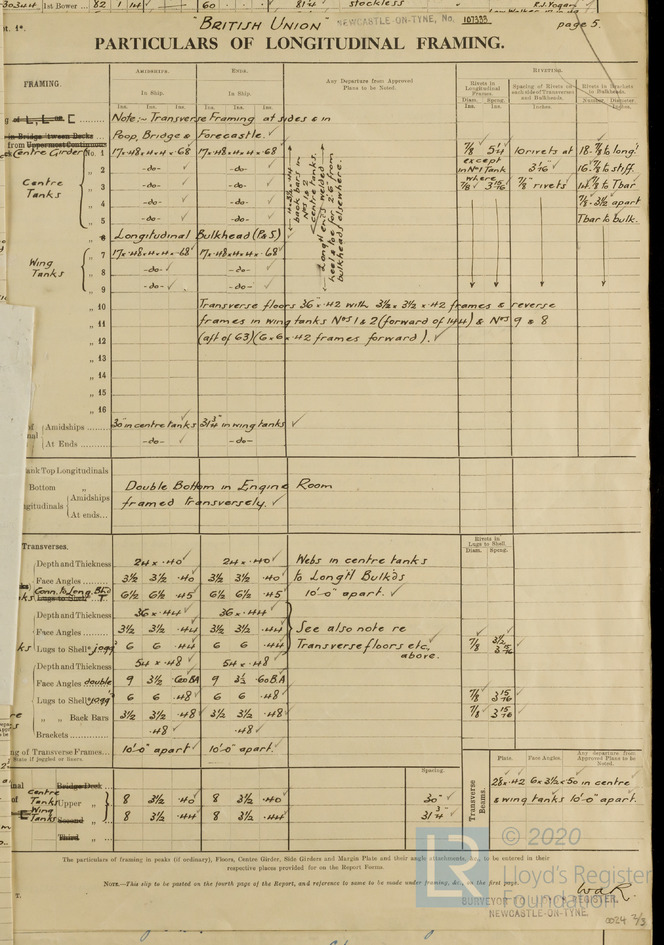 30344 1st Bower .. 82 1 14 60 . . 81 4 stockless R.J. Vogan
"BRITISH UNION" NEWCASTLE-ON-TYNE, No. 107388 page 5.
PARTICULARS OF LONGITUDINAL FRAMING.
FRAMING. AMIDSHIPS. ENDS. Any Departure from Approved Plans to be Noted. RIVETING.
In Ship. In Ship. Rivets in Longitudinal Frames. Spacing of Rivets on each side of Transverses and Bulkheads. Rivets in Brackets to Bulkheads.
Ins. Ins. Ins. Ins. Ins. Ins. Diam. Ins. Spcng. Ins. Inches. Number. Diameter Inches.
Note:- Transverse Framing at sides & in
in Bridge 'tween Decks Poop, Bridge & Forecastle. ✓
Centre Girder No. 1 17 × .48 × 4 × 4 × .68 ✓ 17 × .48 × 4 × 4 × .68 ✓ 7/8 5 1/4 10 rivets at 18-7/8 to long'l
Centre Tanks „ 2 -do- ✓ -do- ✓ except in No 1 Tank 3 15/16 16-7/8 to stiff.
„ 3 -do- ✓ -do- ✓ where 7/8 3 15/16 7/8 rivets 14-7/8 Tbar
„ 4 -do- ✓ -do- ✓ 7/8-3 1/2 apart
„ 5 -do- ✓ -do- ✓ Tbar to bulk.
back bars in Nos 1 & 2 centre tanks.
Longl ends welded heel & toe for 2'6" from bulkheads elsewhere.
„ 6 Longitudinal Bulkhead (P&S)
Wing Tanks „ 7 17 × .48 × 4 × 4 × .68 ✓ 17 × .48 × 4 × 4 × .68 ✓
„ 8 -do- ✓ -do- ✓
„ 9 -do- ✓ -do- ✓
„ 10 Transverse floors 36" × .42 with 3½ × 3½ × .42 frames & reverse
„ 11 frames in wing tanks Nos 1 & 2 (forward of 144) & Nos 9 & 8
„ 12 (aft of 63) (6 × 6 × .42 frames forward). ✓
„ 13
„ 14
„ 15
„ 16
Amidships 30" in centre tanks ✓ 31¾" in wing tanks ✓
At Ends ... -do- ✓ -do-
Tank Top Longitudinals
Bottom „ Double Bottom in Engine Room
Amidships framed transversely. ✓
At ends...
Transverses. Rivets in Lugs to Shell. Diam. Spcng.
Depth and Thickness 24 × .40 ✓ 24 × .40 ✓ Webs in centre tanks
Face Angles ...... 3½ 3½ .40 ✓ 3½ 3½ .40 ✓ to Long'tl Bulk'ds
Conn. to Long. Bhd Lugs to Shell 6½ 6½ .45 ✓ 6½ 6½ .45 ✓ 10'-0" apart. ✓
Depth and Thickness 36 × .44 ✓ 36 × .44 ✓
Face Angles ....... 3½ 3½ .44 ✓ 3½ 3½ .44 ✓ See also note re
Lugs to Shell 6 6 .44 ✓ 6 6 .44 ✓ Transverse floors etc. above. 7/8
Depth and Thickness 54 × .48 ✓ 54 × .48 ✓
Face Angles double 9 3½ .60 BA 9 3½ .60 B.A
Lugs to Shell 6 6 .48 ✓ 6 6 .48 ✓ 7/8 3 15/16 ✓
„ „ Back Bars 3½ 3½ .48 ✓ 3½ 3½ .48 ✓ 7/8 3 15/16 ✓
Brackets ........ .48 ✓ .48 ✓
Spacing of Transverse Frames... 10'-0" apart ✓ 10'-0" apart. ✓
State if joggled or liners.
Spacing. Transverse Beams. Plate. Face Angles. Any departure from Approved Plans to be Noted.
Bridge Deck 28 × .42 6 × 3½ × .50 in centre
Centre Tanks Upper „ 8 3½ .40 ✓ 8 3½ .40 ✓ 30" ✓ & wing tanks 10'-0" apart.
Wing Tanks Second „ 8 3½ .44 ✓ 8 3½ .44 ✓ 31¾" ✓
Third „
The particulars of framing in peaks (if ordinary), Floors, Center Girder, Side Girders and Margin Plate and their angle attachments, &c., to be entered in their
respective places provided for on the Report Forms.
NOTE.—This slip to be posted on the fourth page of the Report, and reference to same to be made under framing, &c., on the first page.
© 2020
LR Lloyd's Register
Foundation
SURVEYOR TO LLOYD'S REGISTER.
NEWCASTLE-ON-TYNE
0024 2/3